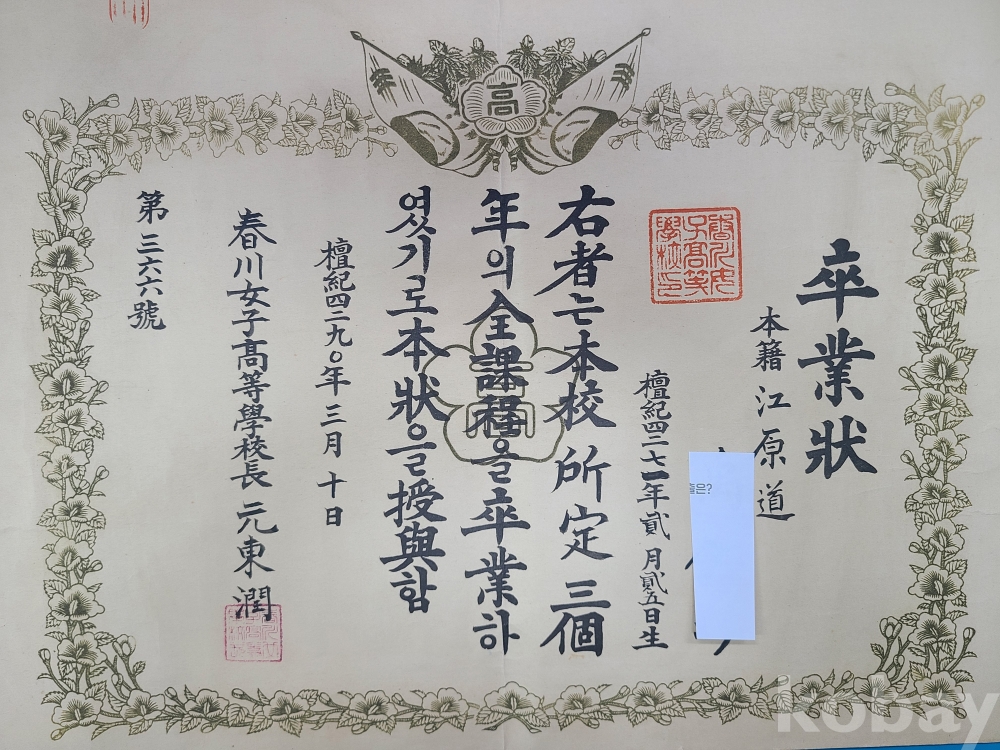 高
卒業狀
本籍 江原道
檀紀四二七一年貳月貳五日生
右者는本校所定三個
年의全課程을卒業하
였기로本狀을授與함
檀紀四二九〇年三月十日
春川女子高等學校長 元東潤
第三六六號
春川女子高等學校印
은?
kobay